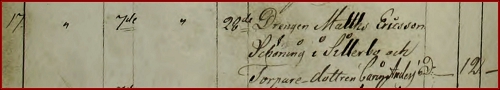 17. " 7de " 28de Drengen Matths Ericsson
Schöning i Sillerby och
Torpare-dottren Carin Anders D. — 12 —